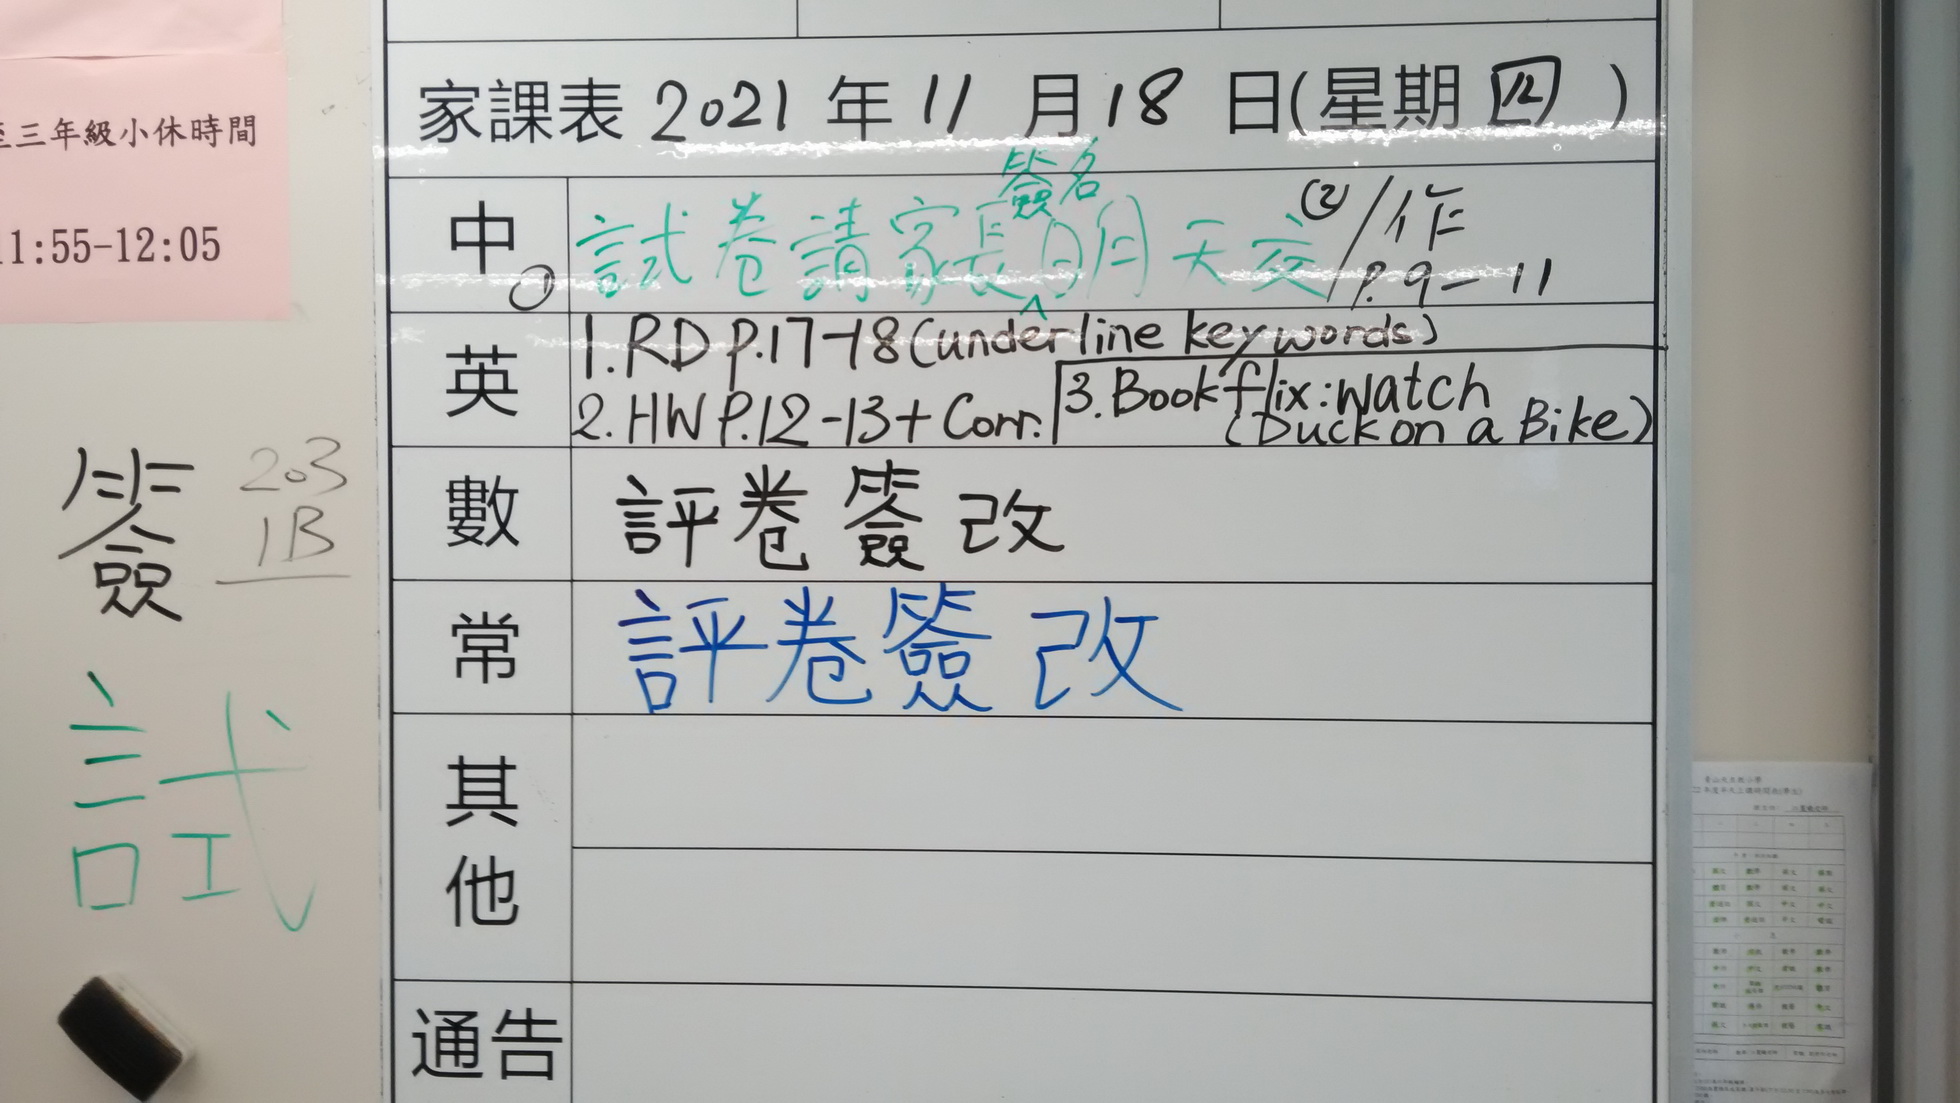 至三年級小休時間
11:55-12:05
家課表 2021 年 11 月 18 日(星期四)
中 ① 試卷請家長簽名明天交 ② 作 P.9-11
英 1. RD P.17-18 (underline keywords)
2. HW P.12-13 + Corr. 3. Bookflix: Watch
(Duck on a Bike)
數 評卷簽改
常 評卷簽改
其他
通告
簽
203
1B
試